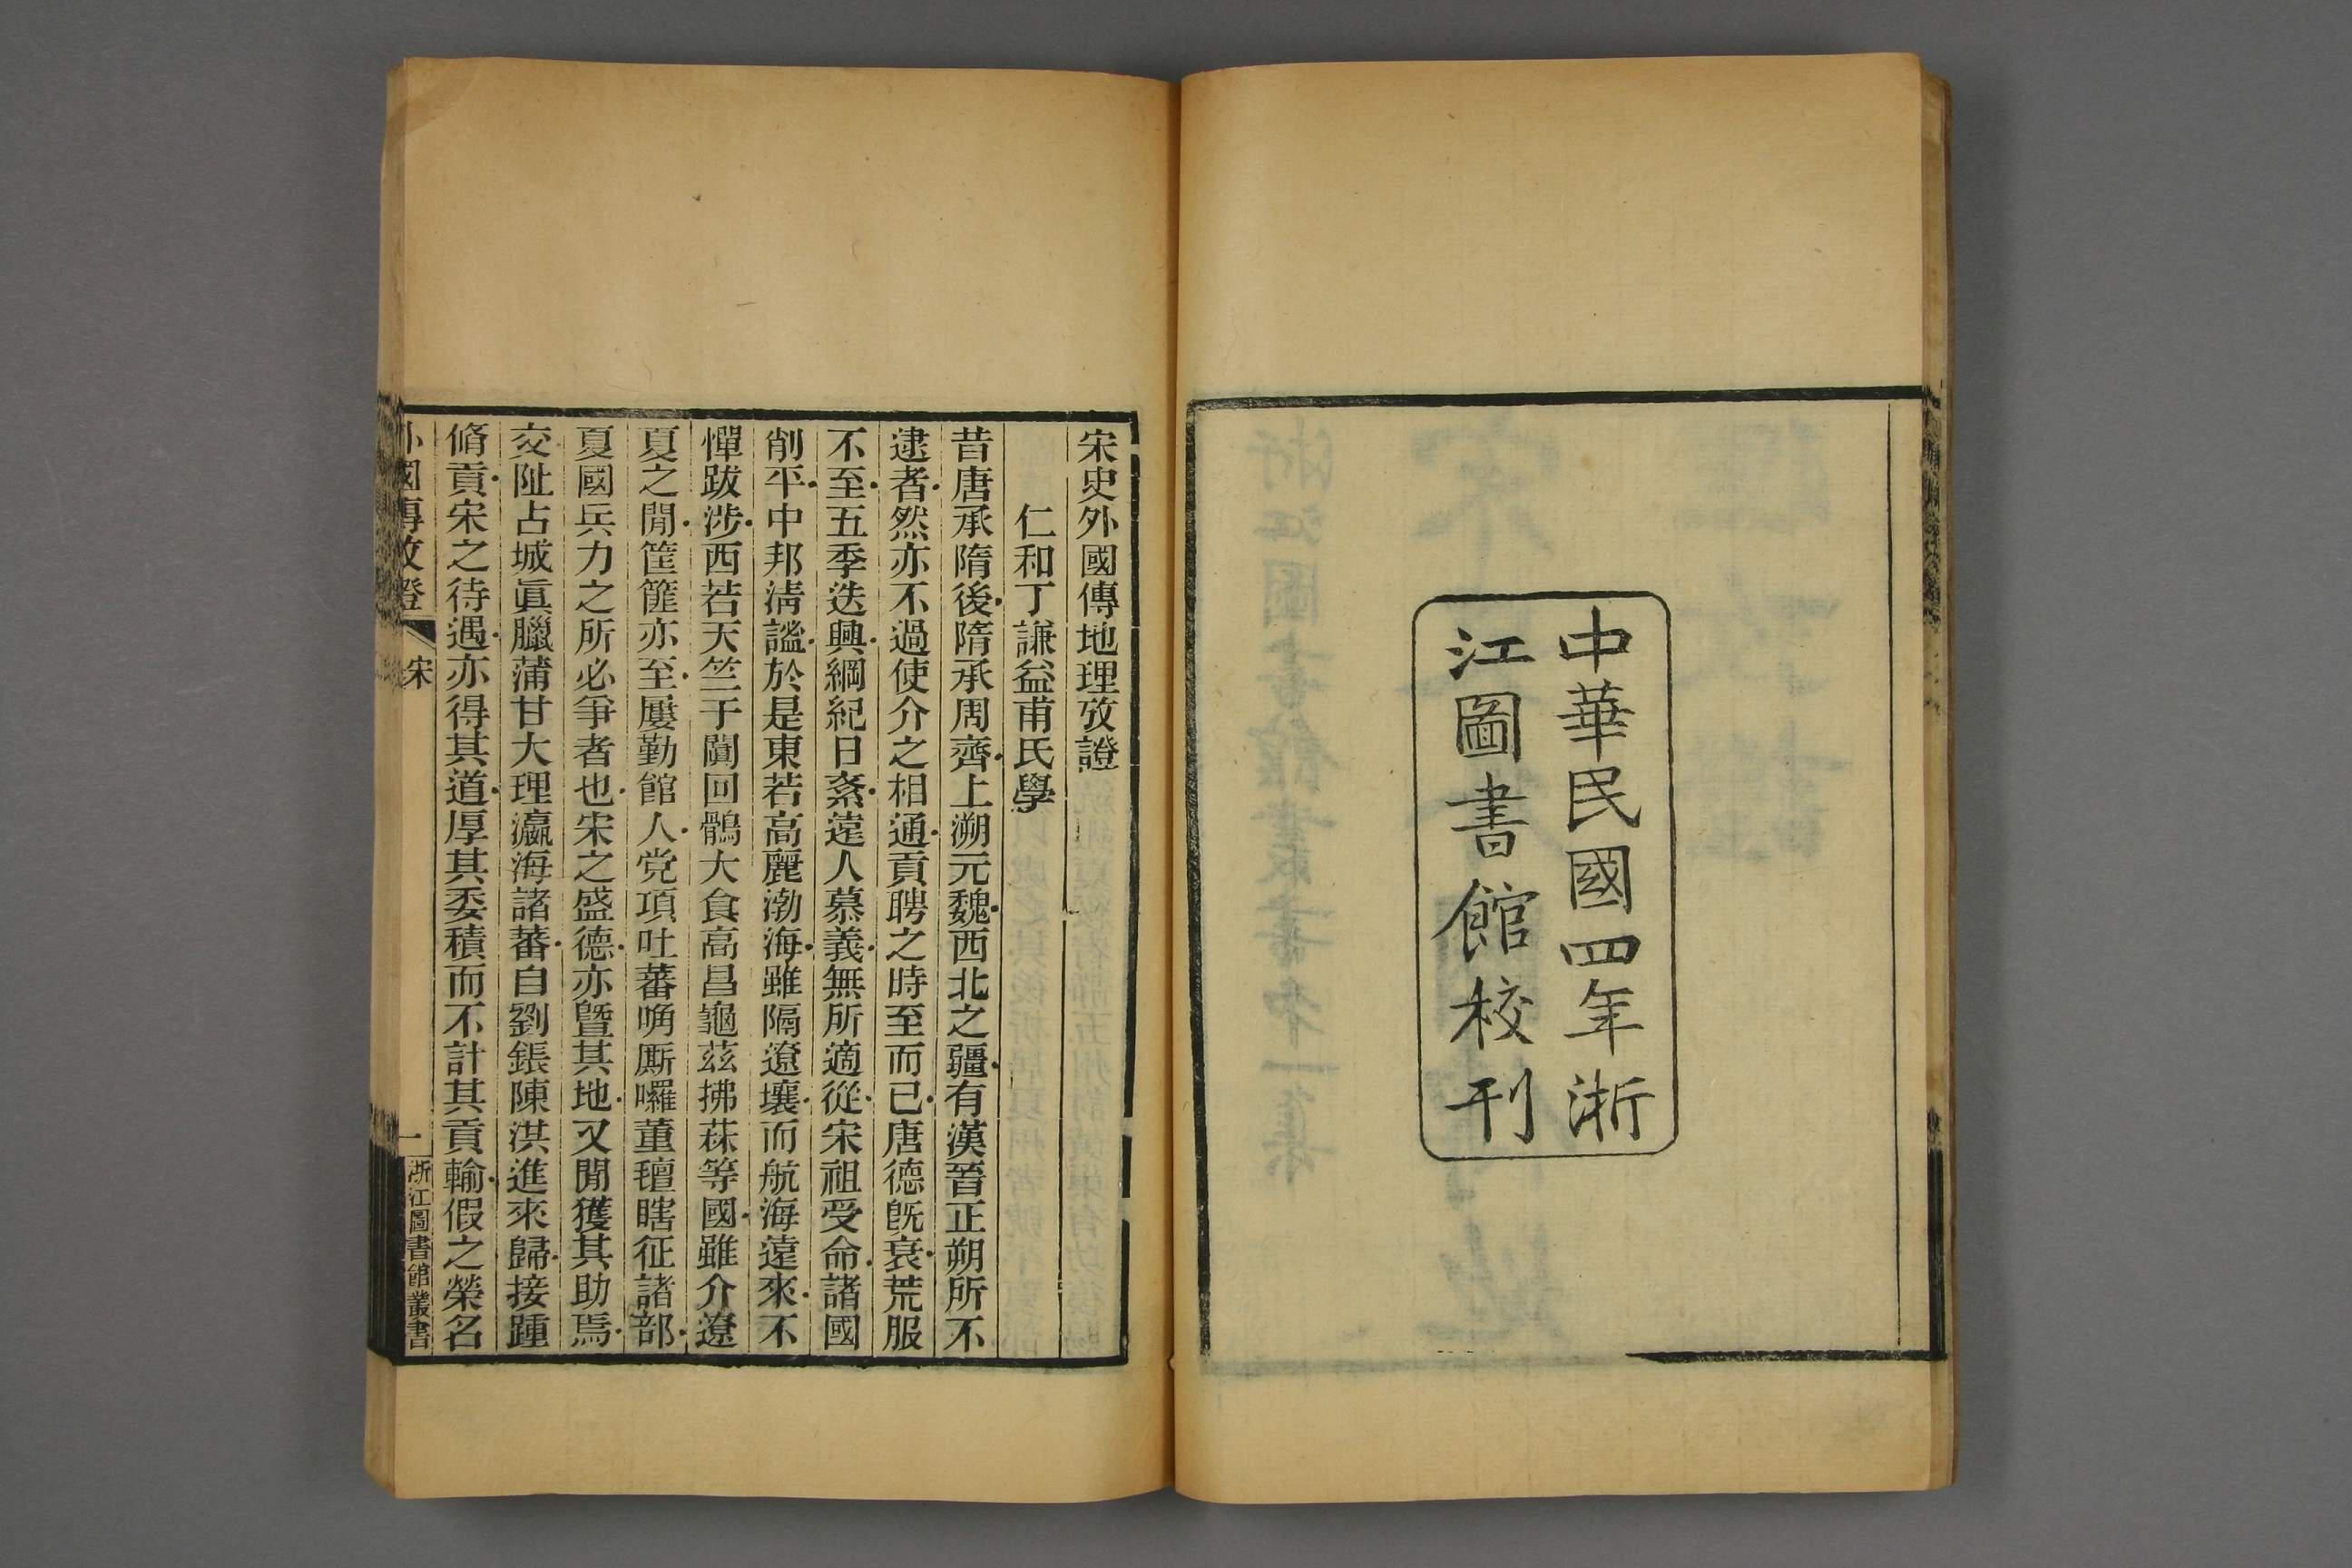 中華民國四年浙
江圖書館校刊
宋史外國傳地理攷證
仁和丁謙益甫氏學
昔唐承隋後隋承周齊上溯元魏西北之疆有漢晉正朔所不
逮者然亦不過使介之相通貢聘之時至而已唐德旣衰荒服
不至五季迭興綱紀日紊遠人慕義無所適從宋祖受命諸國
削平中邦淸謐於是東若高麗渤海雖隔遼壤而航海遠來不
憚跋涉西若天竺于闐回鶻大食高昌龜茲拂菻等國雖介遼
夏之閒筐篚亦至屢勤館人党項吐蕃唃厮囉董氊瞎征諸部
夏國兵力之所必爭者也宋之盛德亦曁其地又閒獲其助焉
交阯占城眞臘蒲甘大理瀛海諸蕃自劉鋹陳洪進來歸接踵
脩貢宋之待遇亦得其道厚其委積而不計其貢輸假之榮名
外國傳攷證 宋 一 浙江圖書館叢書